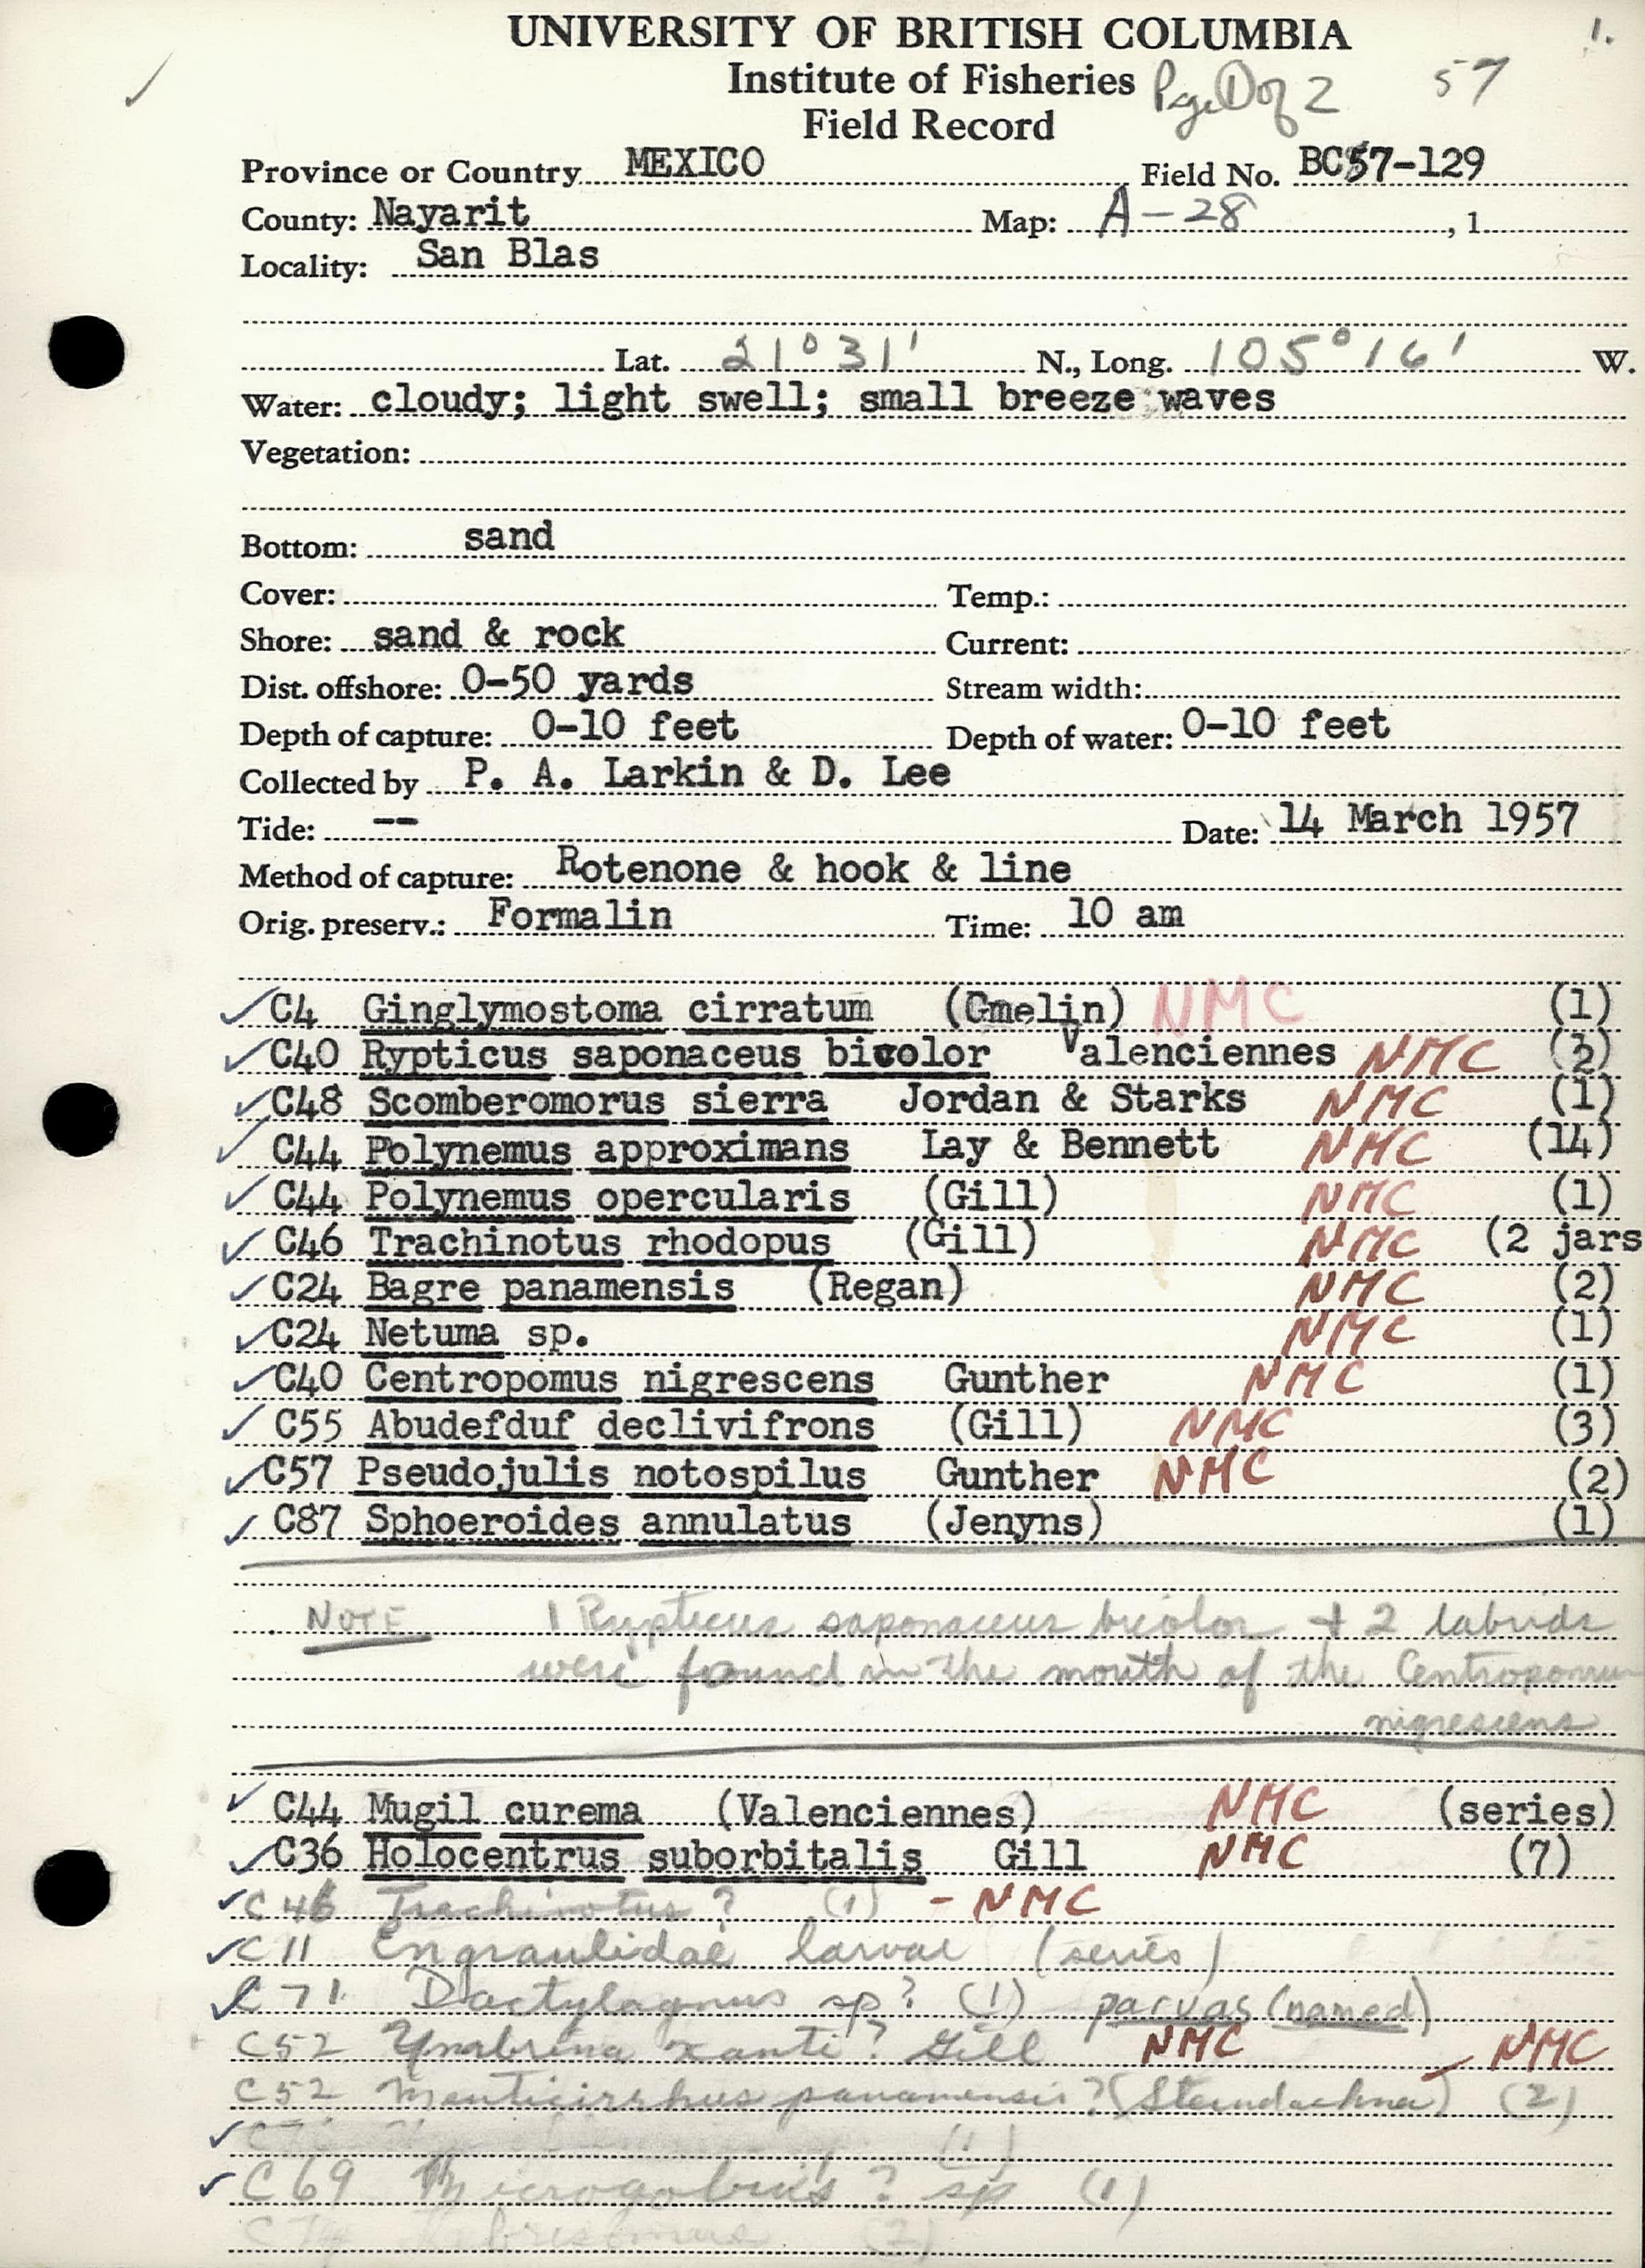 UNIVERSITY OF BRITISH COLUMBIA 1.
Institute of Fisheries Page 1 of 2 57
Field Record
Province or Country MEXICO Field No. BC57-129
County: Nayarit Map: A-28, 1
Locality: San Blas
Lat. 21°31' N., Long. 105°16' W.
Water: cloudy; light swell; small breeze waves
Vegetation:
Bottom: sand
Cover: Temp.:
Shore: sand & rock Current:
Dist. offshore: 0-50 yards Stream width:
Depth of capture: 0-10 feet Depth of water: 0-10 feet
Collected by P. A. Larkin & D. Lee
Tide: -- Date: 14 March 1957
Method of capture: Rotenone & hook & line
Orig. preserv.: Formalin Time: 10 am
✓C4 Ginglymostoma cirratum (Gmelin) NMC (1)
✓C40 Rypticus saponaceus bicolor Valenciennes NMC
✓C48 Scomberomorus sierra Jordan & Starks NMC (1)
✓C44 Polynemus approximans Lay & Bennett NMC (14)
✓C44 Polynemus opercularis (Gill) NMC (1)
✓C46 Trachinotus rhodopus (Gill) NMC (2 jars
✓C24 Bagre panamensis (Regan) NMC (2)
✓C24 Netuma sp. NMC (1)
✓C40 Centropomus nigrescens Gunther NMC (1)
✓C55 Abudefduf declivifrons (Gill) NMC (3)
✓C57 Pseudojulis notospilus Gunther NMC (2)
✓C87 Sphoeroides annulatus (Jenyns) (1)
NOTE 1 Rypticus saponaceus bicolor + 2 labrids
were found in the mouth of the Centropomus
nigrescens
✓C44 Mugil curema (Valenciennes) NMC (series)
✓C36 Holocentrus suborbitalis Gill NMC (7)
✓C46 Trachinotus? (1) - NMC
✓C11 Engraulidae larvae (series)
✓C71 Dactylagnus sp? (1) parvus (named)
C52 Umbrina xanti? Gill NMC NMC
C52 Menticirrhus panamensis? (Steindachner) (2)
✓ (1)
✓C69 Microgobius? sp (1)